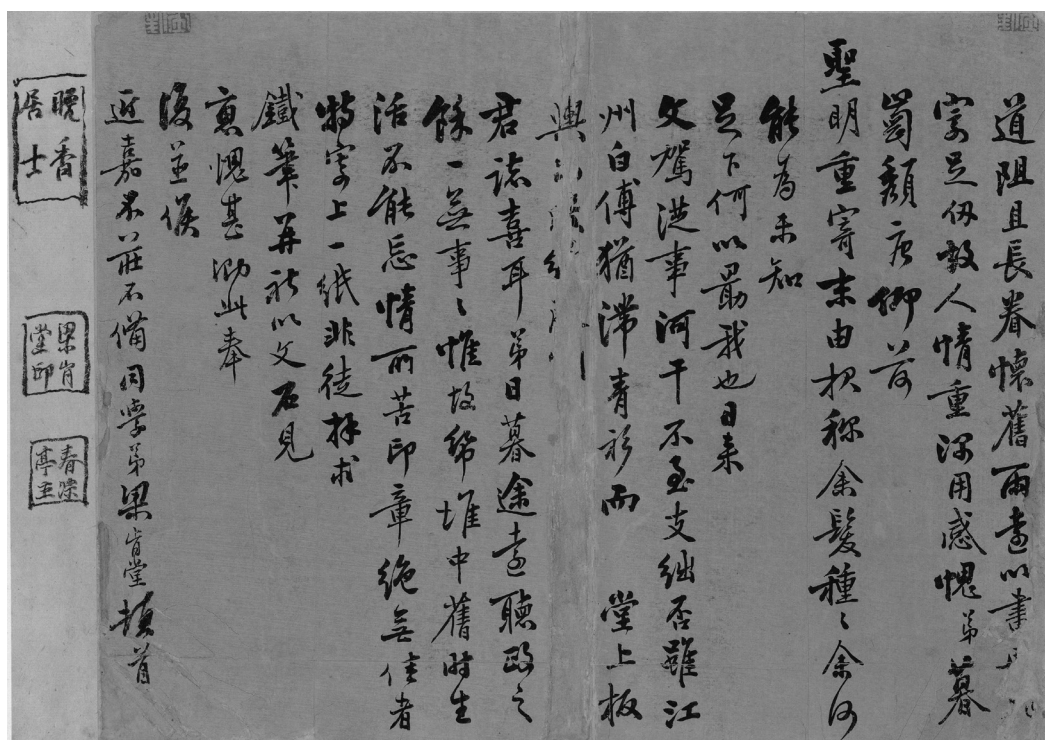 道阻且長眷懷舊雨遠以書
字足仞故人情重深用感愧弟暮
齒頹唐仰荷
聖明重寄末由報稱余髮種〻余何
能為未知
足下何以勖我也日來
文駕從事河干不至支絀否雖江
州白傅猶滯青衫而 堂上板
輿
君諒喜耳弟日暮途遠聽政之
餘一無事〻惟故紙堆中舊時生
活不能忘情所苦印章絕無佳者
特寄上一紙非徒拜求
鐵筆並祈以文石見
惠愧甚泐此奉
復並候
近嘉不莊不備同學弟梁肯堂頓首
晚香居士
梁肯堂印
春隄亭主